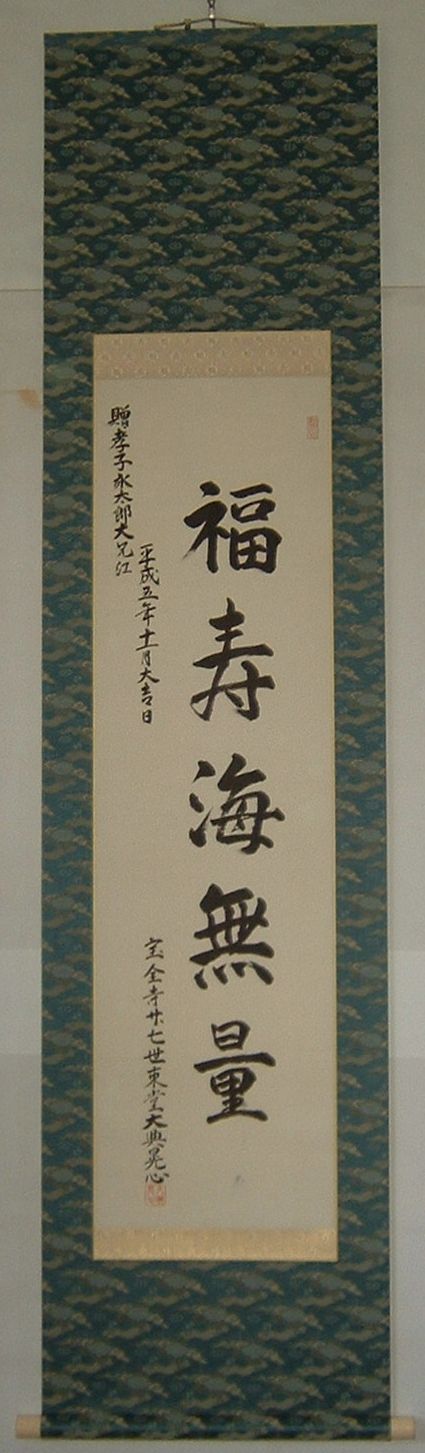 福寿海無量
平成五年十一月大吉日
宝全寺廿七世東堂大典晃心
贈孝子永太郎大兄江